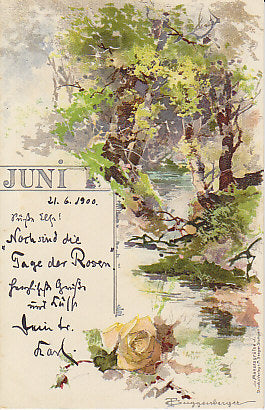 JUNI
21.6.1900.
Süße Else!
Noch sind die
"Tage der Rosen"
Herzlichste Grüße
und Küsse
Dein tr.
Karl.